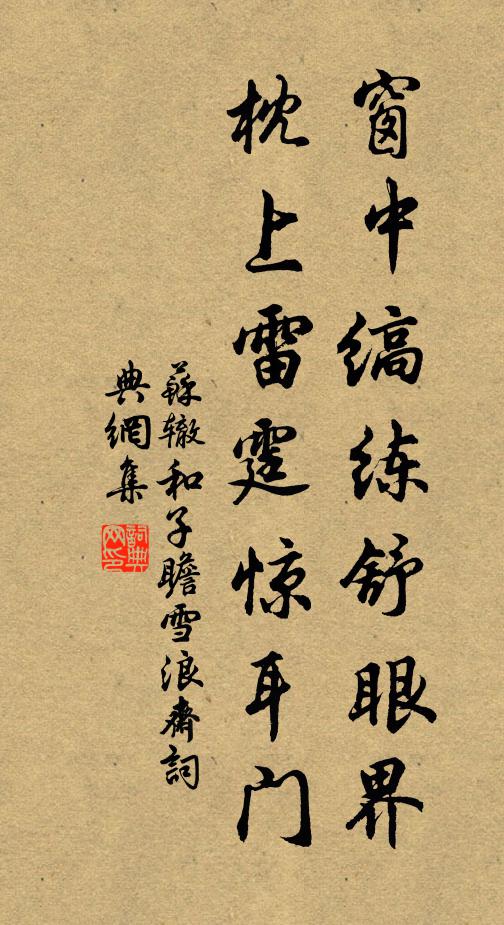 窗中缟练舒眼界
枕上雷霆惊耳门
蘇辙和子瞻雪浪齋詞
典網集
詞典網印